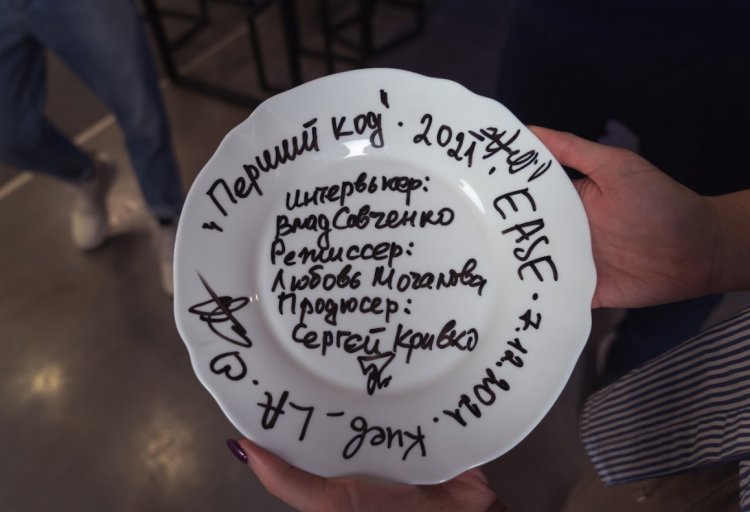 "Перший код". 2021. EASE. 7.12.2021. Киев - LA.
Интервьюер:
Влад Савченко
Режиссер:
Любовь Мочалова
Продюсер:
Сергей Кривко